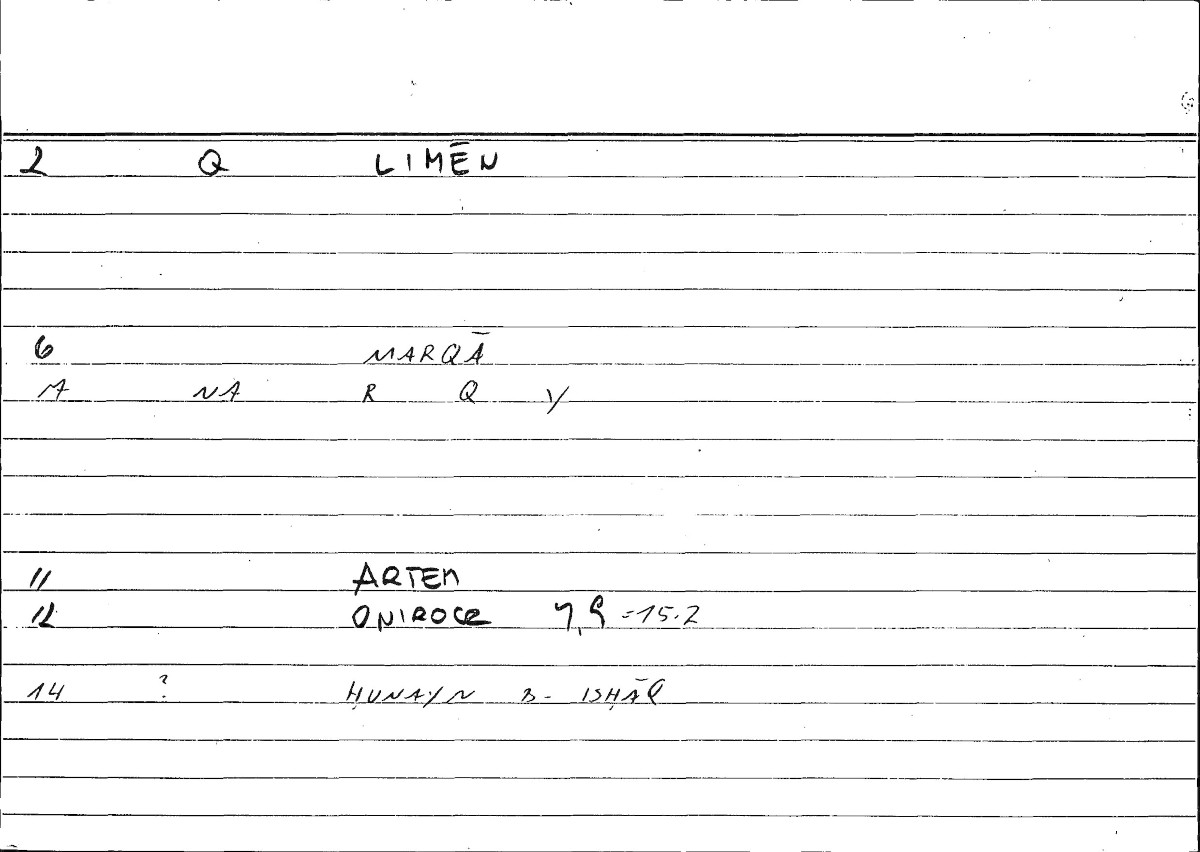 2 Q LIMĒN
6 MARQĀ
NA R Q Y
11 ARTEM
12 ONIROCR =15.2
14 ? ḤUNAYN B- ISḤĀQ